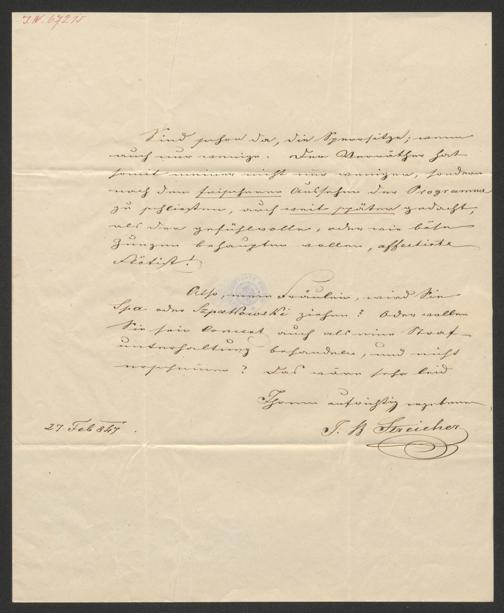 I.N. 67215
Sind schon da, die Sperrsitze, wenn
auch nur wenige. Der Verräther hat
somit meiner nicht nur weniger, sondern
nach dem Aussehen des Programms
zu schließen, auch weit später gedacht,
als der gefühlvolle, oder wie böse
Zungen behaupten wollen, affectirte
Flötist!
Also, mein Fräulein, wird Sie
Spa oder Szpatkowski ziehen? Oder wollen
Sie sein Concert auch als eine Straf-
unterhaltung behandeln, und nicht
erscheinen? Das wäre sehr leid
Ihrem aufrichtig ergebenen
27 Feb 847.
J. B Streicher